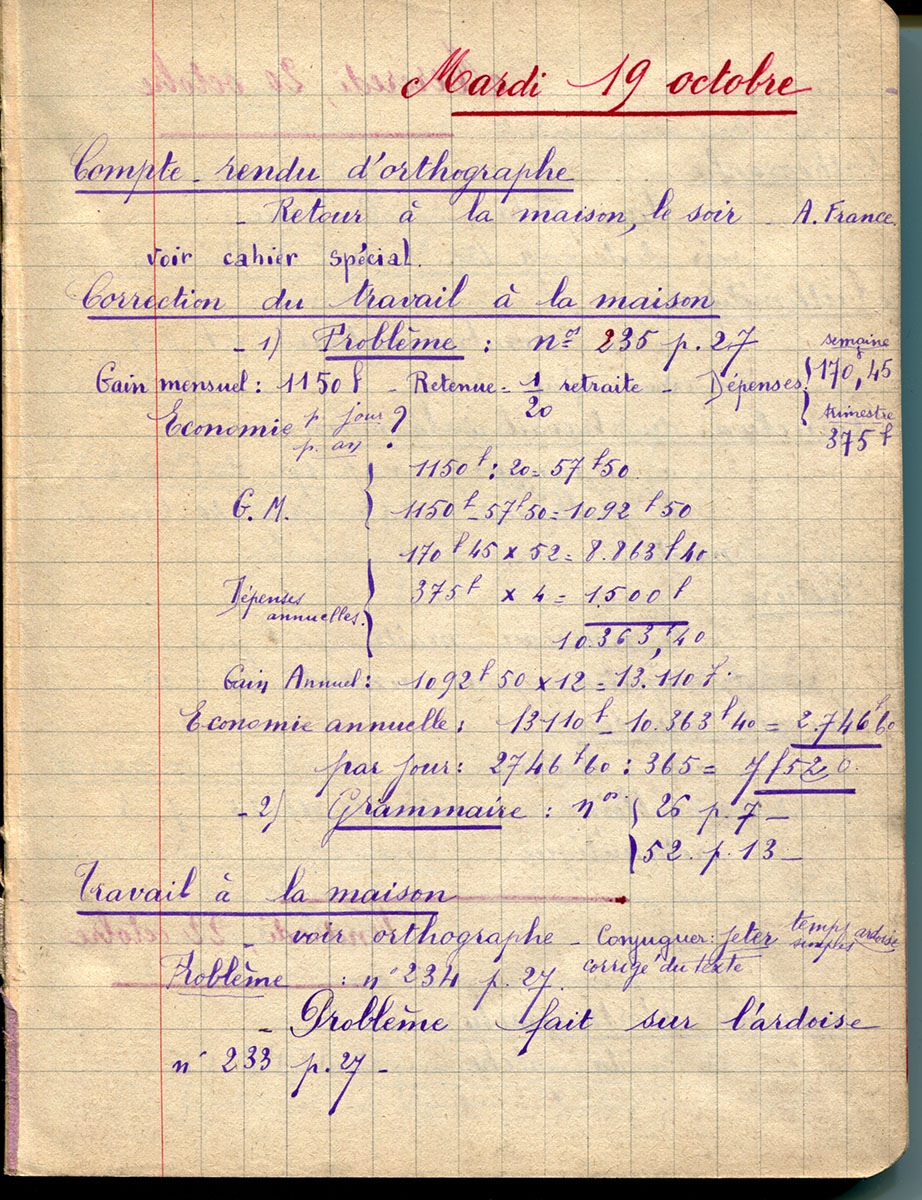 Mardi 19 octobre
Compte-rendu d'orthographe
- Retour à la maison, le soir - A. France.
voir cahier spécial.
Correction du travail à la maison
- 1) Problème : nos 235 p. 27
Gain mensuel : 1150 f - Retenue = 1/20 retraite - Dépenses : { semaine 170,45
{ trimestre 375 f
Economie p. jour p. an ?
1150 f : 20 = 57 f 50
G. M. { 1150 f - 57 f 50 = 1092 f 50
170 f 45 x 52 = 8.863 f 40
Dépenses annuelles. { 375 f x 4 = 1.500 f
10.363 f, 40
Gain Annuel : 1092 f 50 x 12 = 13.110 f.
Economie annuelle : 13110 f - 10.363 f 40 = 2.746 f 60
par jour : 2746 f 60 : 365 = 7 f 520.
- 2) Grammaire : nos { 26 p. 7 -
{ 52. p. 13 -
Travail à la maison
- voir orthographe - Conjuguer : jeter temps simples ardoise
corrigé du texte
Problème : n° 234 p. 27.
- Problème fait sur l'ardoise
n° 233 p. 27 -